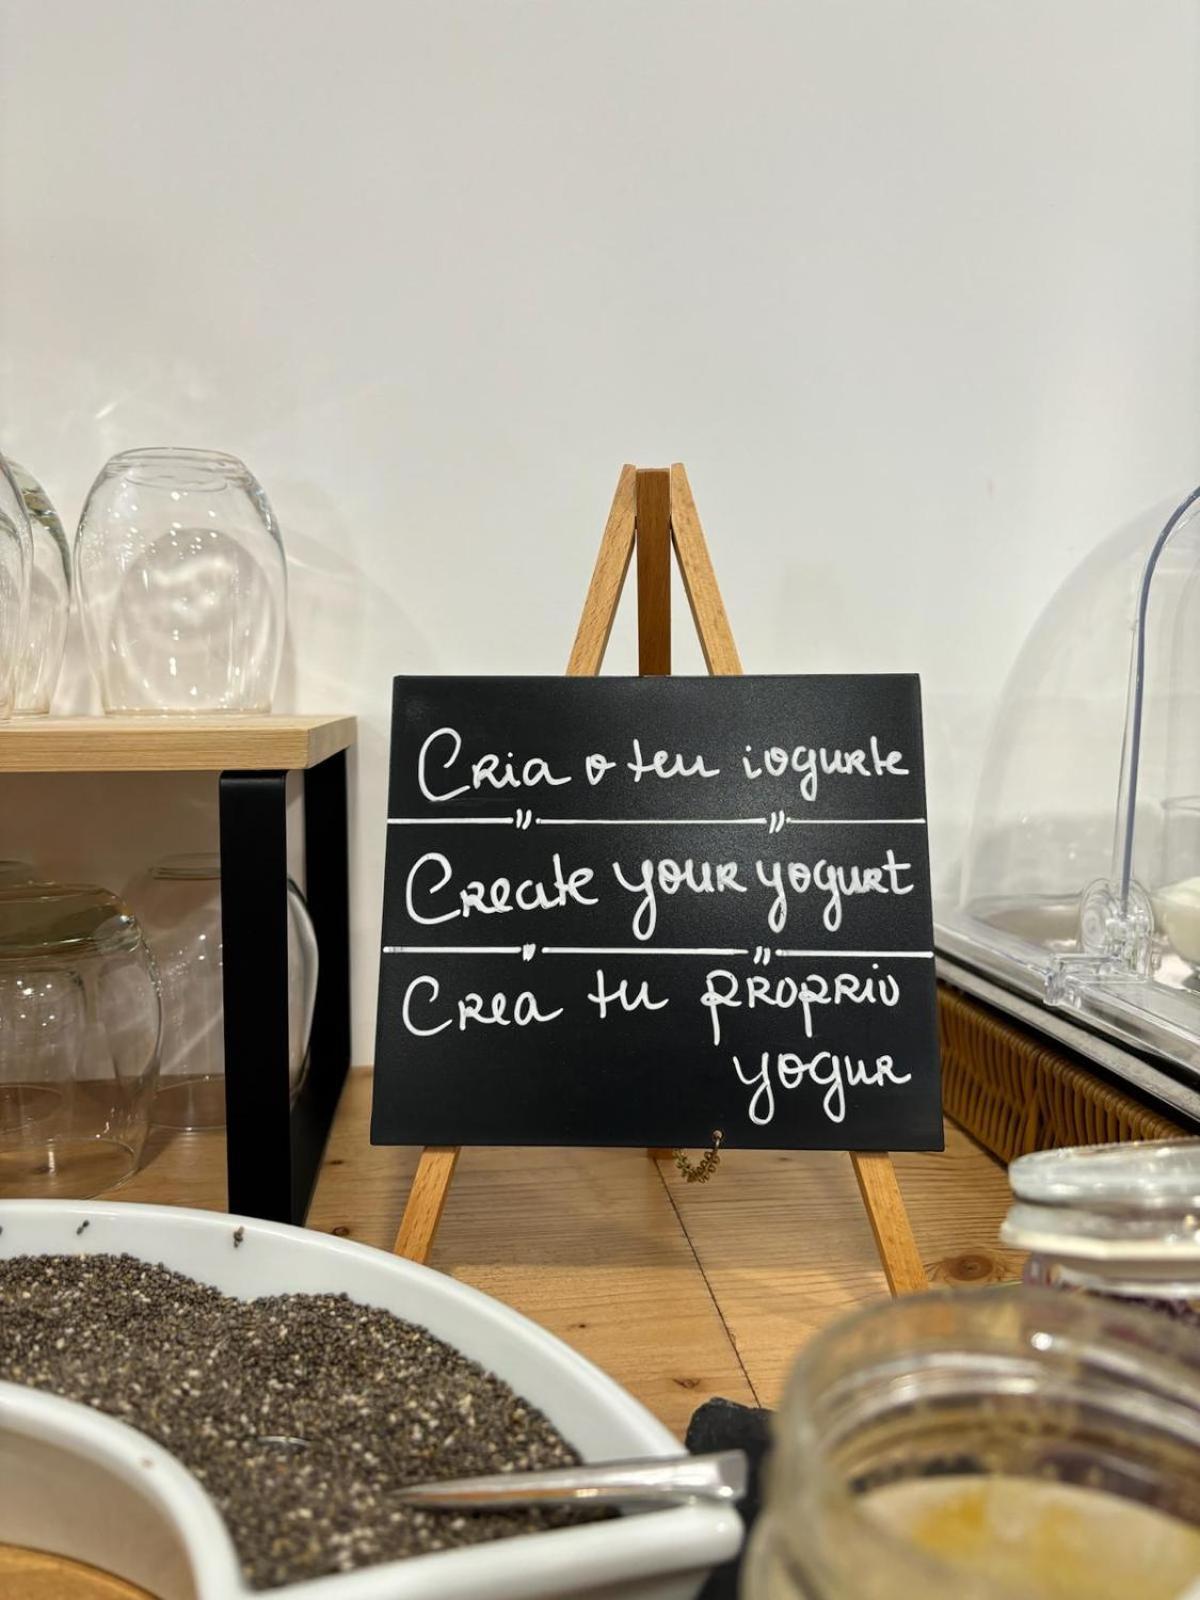 Cria o teu iogurte
Create your yogurt
Crea tu proprio
yogur